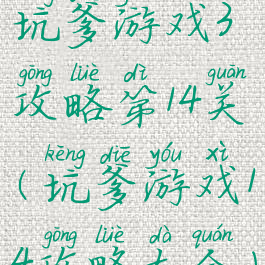 坑爹游戏3
gōng lüè dì guān
攻略第14关
kēng diē yóu xì
(坑爹游戏1
gōng lüè dà quán
4攻略大全)